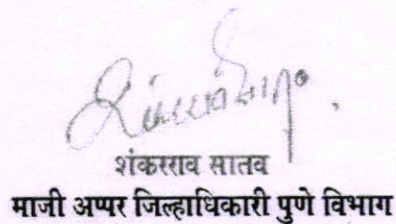 शंकरराव सातव
माजी अप्पर जिल्हाधिकारी पुणे विभाग